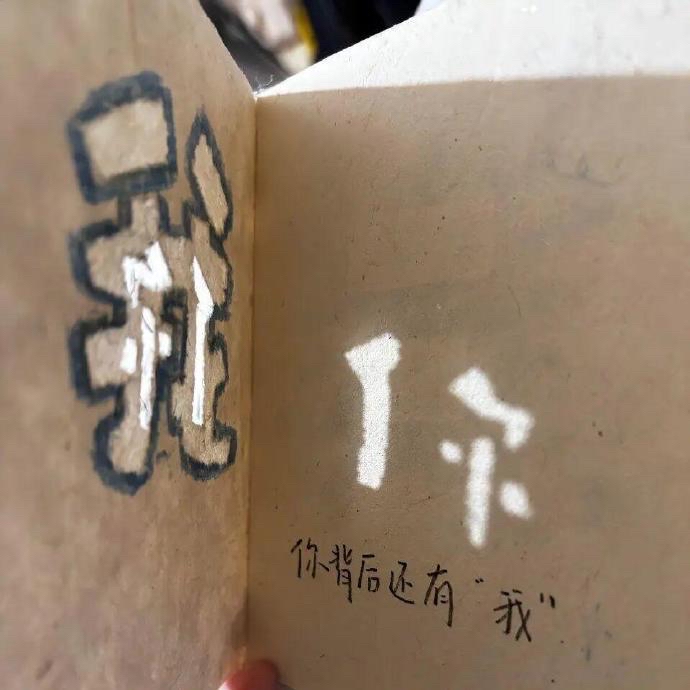 我
你
你背后还有“我”